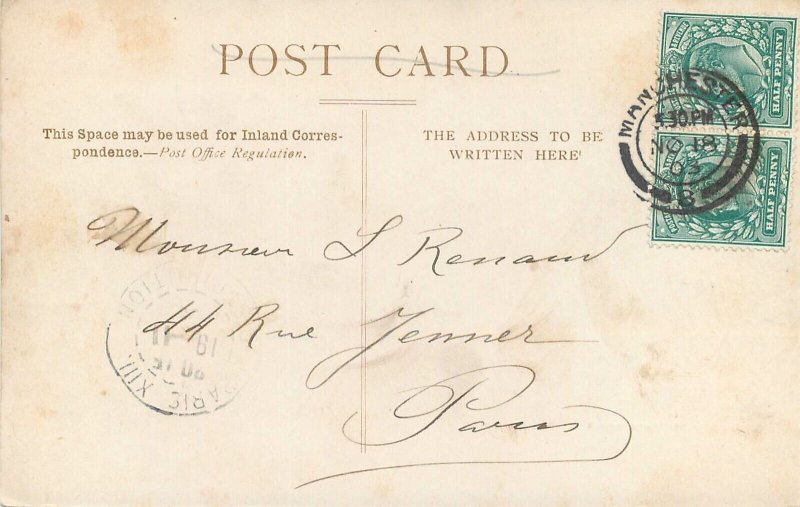 POST CARD
This Space may be used for Inland Corres-
pondence.—Post Office Regulation.
THE ADDRESS TO BE
WRITTEN HERE
HALF PENNY
HALF PENNY
MANCHESTER
5.30 PM
NO 18
03
8
Monsieur L Renaud
44 Rue Jenner
Paris
PARIS XIII
19